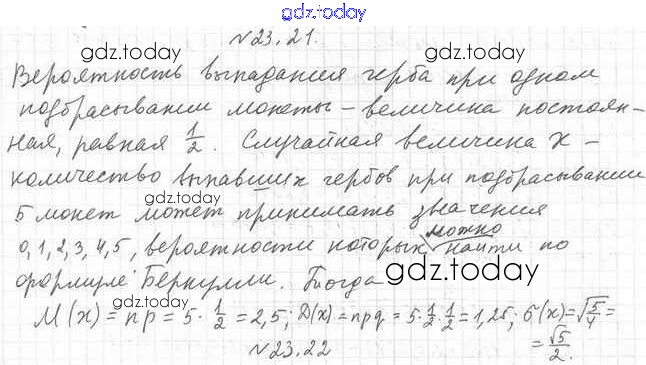 gdz.today
№23.21.
gdz.today gdz.today
Вероятность выпадания герба при одном
подбрасывании монеты – величина постоян-
ная, равная 1/2. Случайная величина X –
количество выпавших гербов при подбрасывании
gdz.today
5 монет может принимать значения
0, 1, 2, 3, 4, 5, вероятности которых можно найти по
формуле Бернулли. Тогда
gdz.today gdz.today
M(x) = np = 5 · 1/2 = 2,5; D(x) = npq = 5 · 1/2 · 1/2 = 1,25; σ(x) = √5/4 =
= √5/2.
№23.22